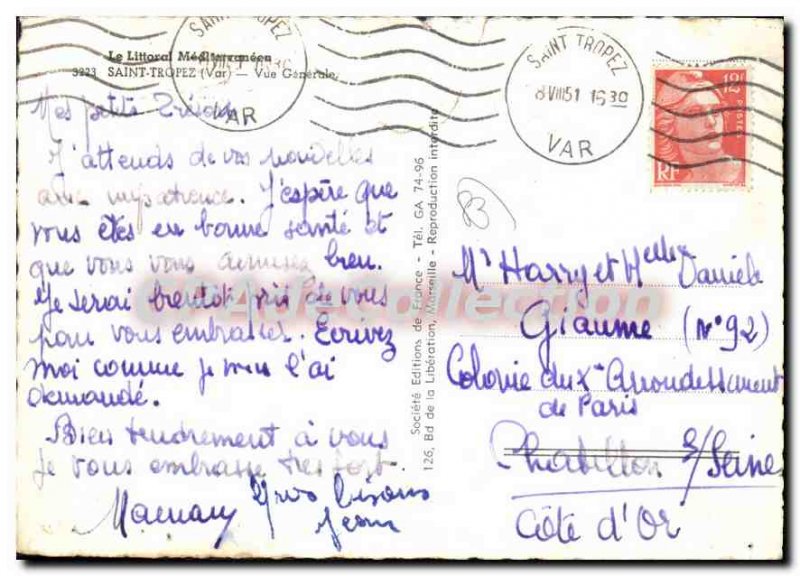 Le Littoral Méditerranéen
3223 SAINT-TROPEZ (Var) — Vue Générale
SAINT TROPEZ
VAR
SAINT TROPEZ
8 VIII 51 16 30
VAR
12F
POSTES
RF
Mes petits Trésors
J'attends de vos nouvelles
avec impatience. J'espère que
vous êtes en bonne santé et
que vous vous amusez bien.
Je serai bientôt près de vous
pour vous embrasser. Ecrivez
moi comme je vous l'ai
demandé.
Bien tendrement à vous
je vous embrasse très fort
Gros bisous
Jean
Société Editions de France - Tél. GA 74-96
126, Bd de la Libération, Marseille - Reproduction interdite
83
Mr Harry et Melle Danièle
Giaume (N°92)
Colonie du Xe Arrondissement
de Paris
Chatillon s/Seine
Côte d'Or
CPAdecollection